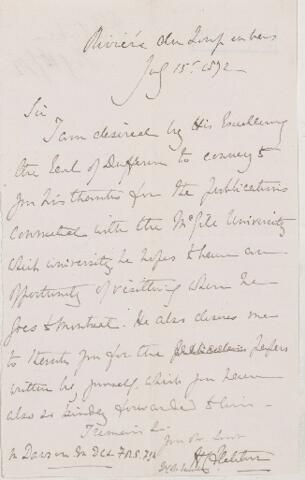 Rivière du Loup en bas
July 15th 1872
Sir
I am desired by His Excellency
the Earl of Dufferin to convey to
you his thanks for the publications
connected with the McGill University
which university he hopes to have an
opportunity of visiting when he
goes to Montreal. He also desires me
to thank you for the papers
written by yourself which you have
also so kindly forwarded to him.
I remain Sir
your ob. Servt